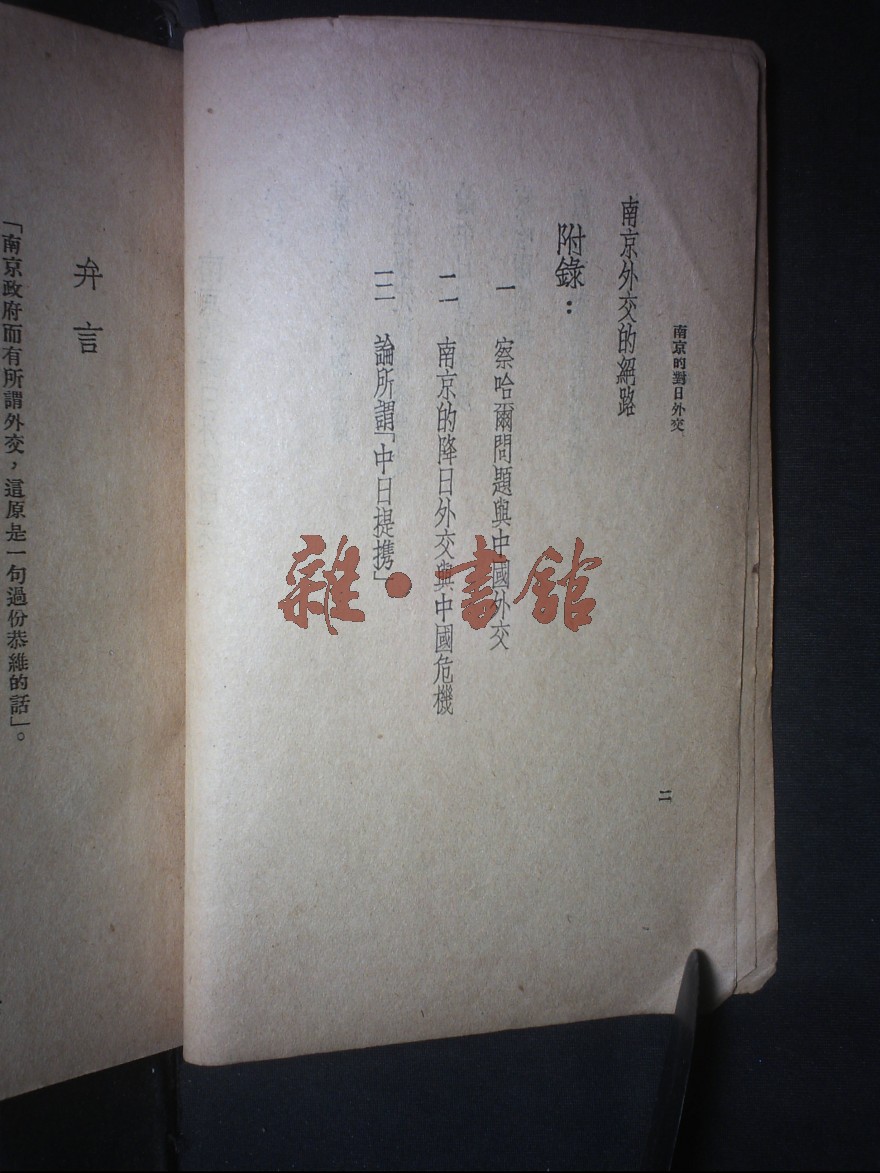 南京的對日外交
二
南京外交的網路
附錄：
一　察哈爾問題與中國外交
二　南京的降日外交與中國危機
三　論所謂「中日提携」
雜·書館
弁言
「南京政府而有所謂外交，這原是一句過份恭維的話」。